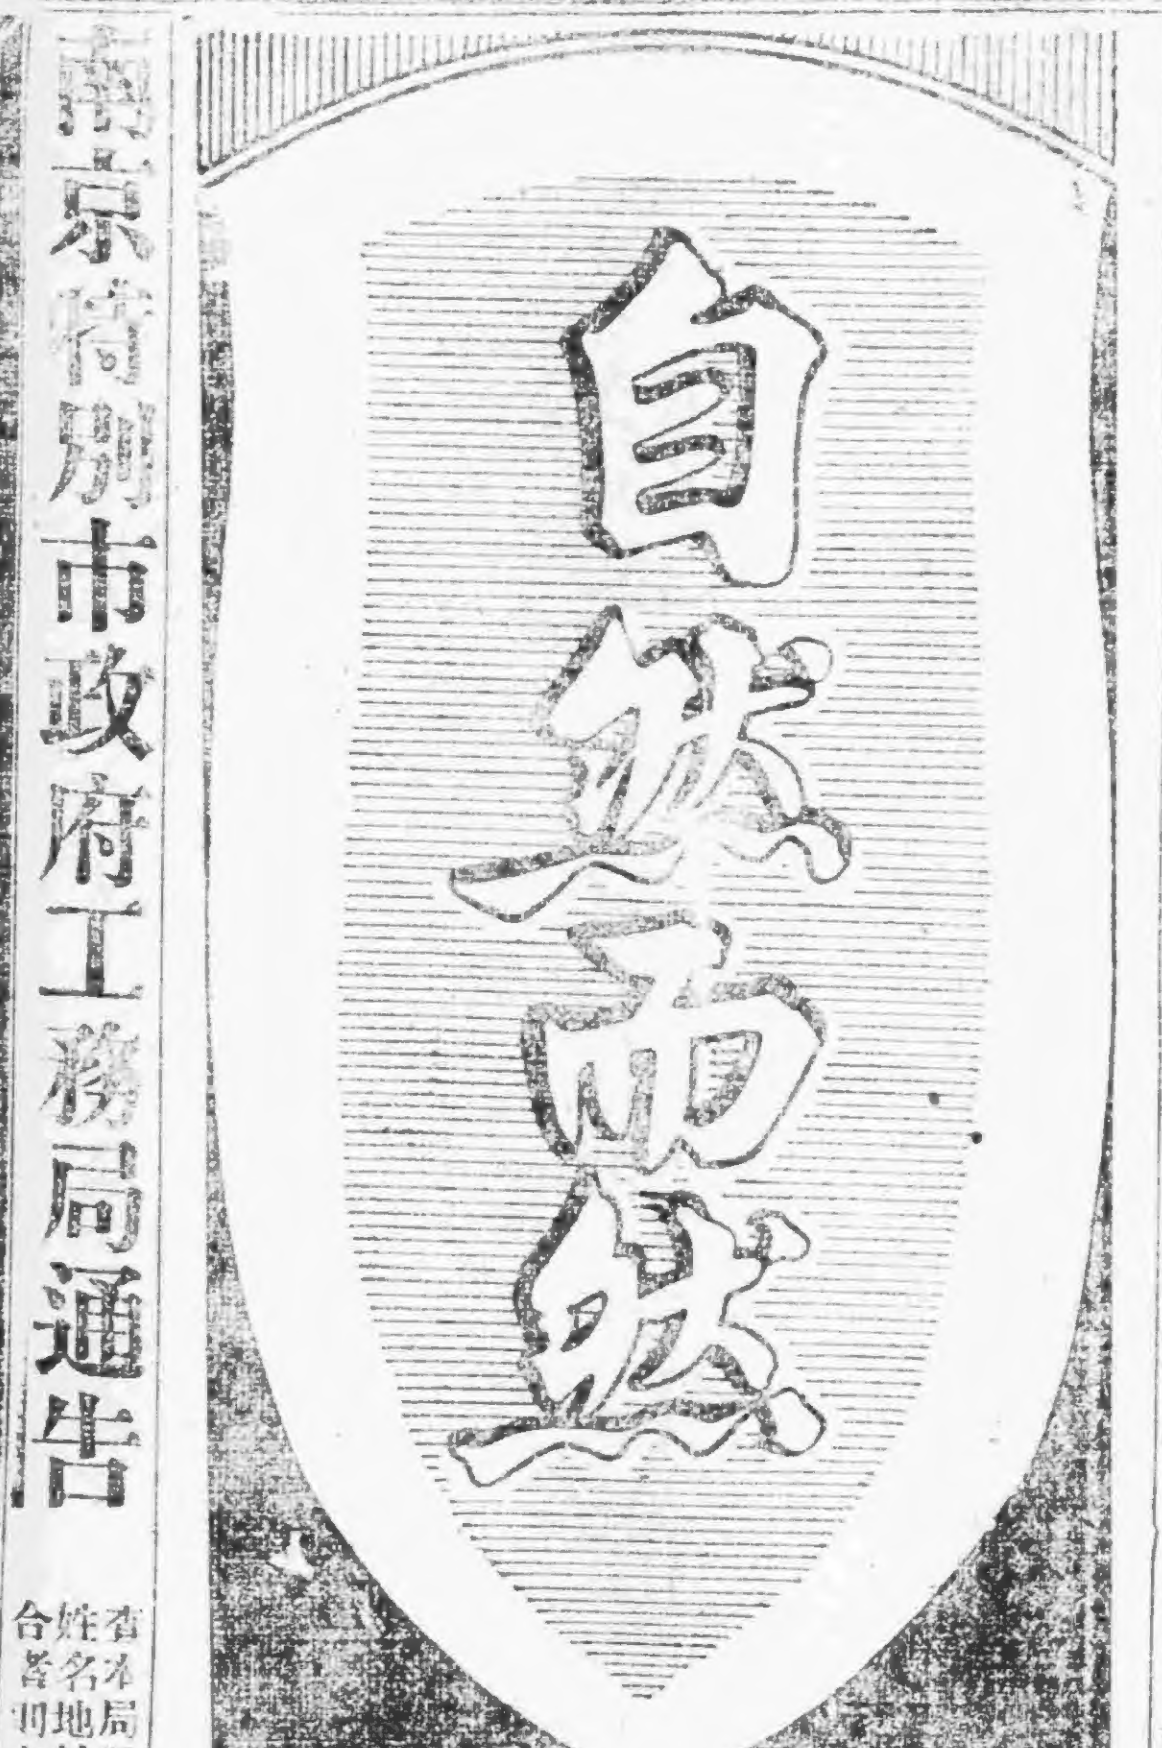 自然而然
南京特別市政府工務局通告
查本局
姓名地
合者則